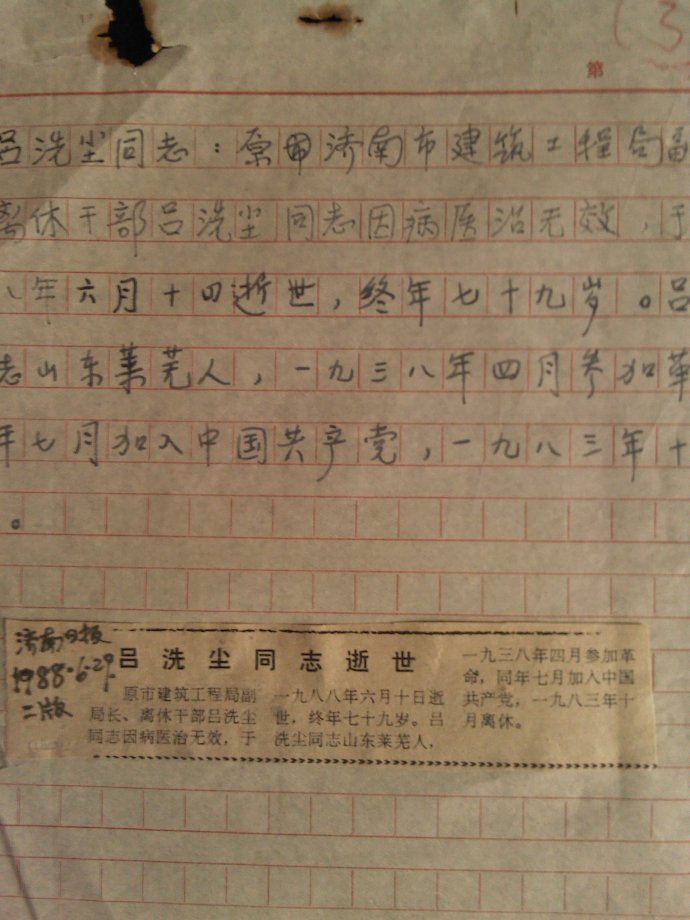 (3
第
吕洗尘同志：原甲济南市建筑工程局副
离休干部吕洗尘同志因病医治无效，于
八年六月十四逝世，终年七十九岁。吕
志山东莱芜人，一九三八年四月参加革
年七月加入中国共产党，一九八三年十
。
济南日报
1988.6.29.
二版
吕洗尘同志逝世
原市建筑工程局副
局长、离休干部吕洗尘
同志因病医治无效，于
一九八八年六月十日逝
世，终年七十九岁。吕
洗尘同志山东莱芜人，
一九三八年四月参加革
命，同年七月加入中国
共产党，一九八三年十
月离休。